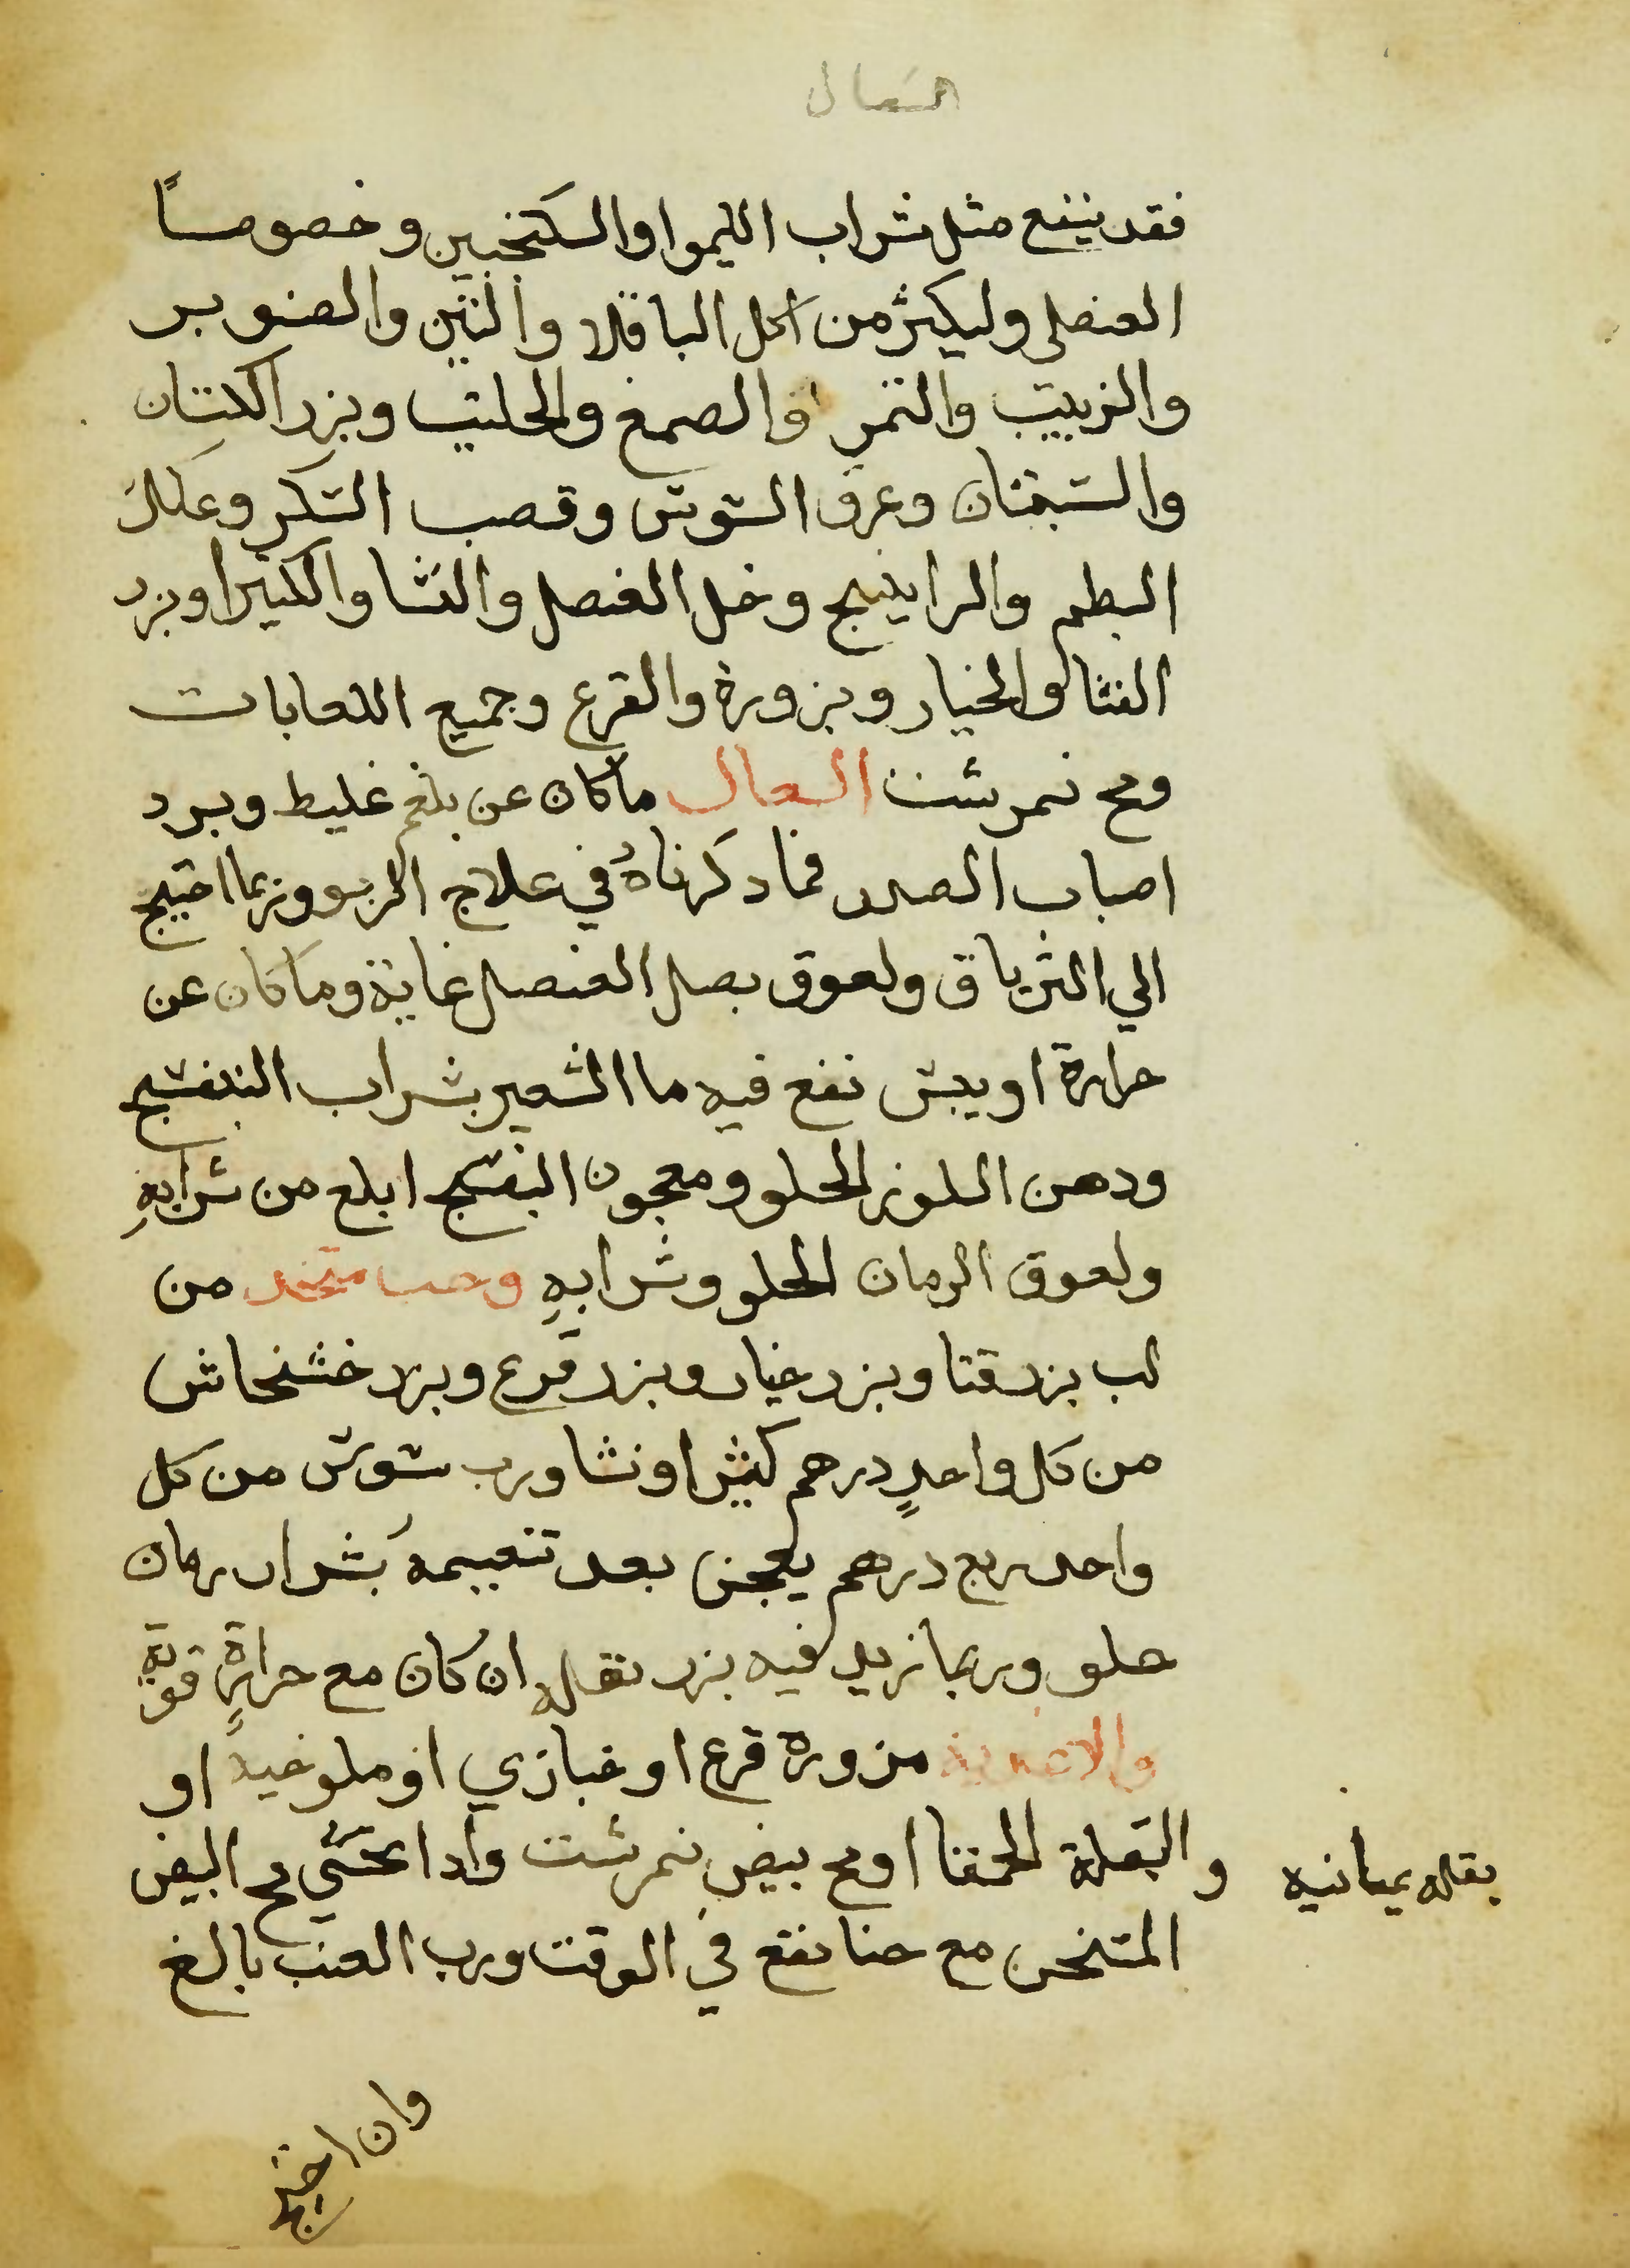 السعال
فقد ينفع مثل شراب الليموا والسكنجبين وخصوصاً
العنصلى وليكثر من اكل الباقلا والتين والصنوبر
والزبيب والتمر والصمغ والحلتيت وبزر الكتان
والسبستان وعرق السوس وقصب السكر وعلك
البطم والراتينج وخل العنصل والنشا والكثيرا وبزر
القثا والخيار وبزوره والقرع وجميع اللعابات
ومح نمرشت السعال ما كان عن بلغم غليظ وبرد
اصاب الصدر فما ذكرناهُ في علاج الربو وربما احتيج
الي الترياق ولعوق بصل العنصل غاية وما كان عن
حرارة او يبس نفع فيه ما الشعير بشراب البنفسج
ودهن اللوز الحلو ومعجون البنفسج ابلغ من شرابهِ
ولعوق الرمان الحلو وشرابهِ وحب متخذ من
لب بزر قثا وبزر خيار وبزر قرع وبزر خشخاش
من كل واحدٍ درهم كثيرا ونشا ورب سوس من كل
واحد ربع درهم يعجن بعد تنعيمه بشراب رمان
حلو وربما زيد فيه بزر بقله ان كان مع حرارةٍ قويةٍ
والاغدية مزورة قرع او خبازي او ملوخية او
والبقلة الحمقا او مح بيض نمرشت واذا تحسّي مح البيض
بقله يمانيه
المتخن مع حنا نفع في الوقت ورب العنب بالغ
وان احتيج